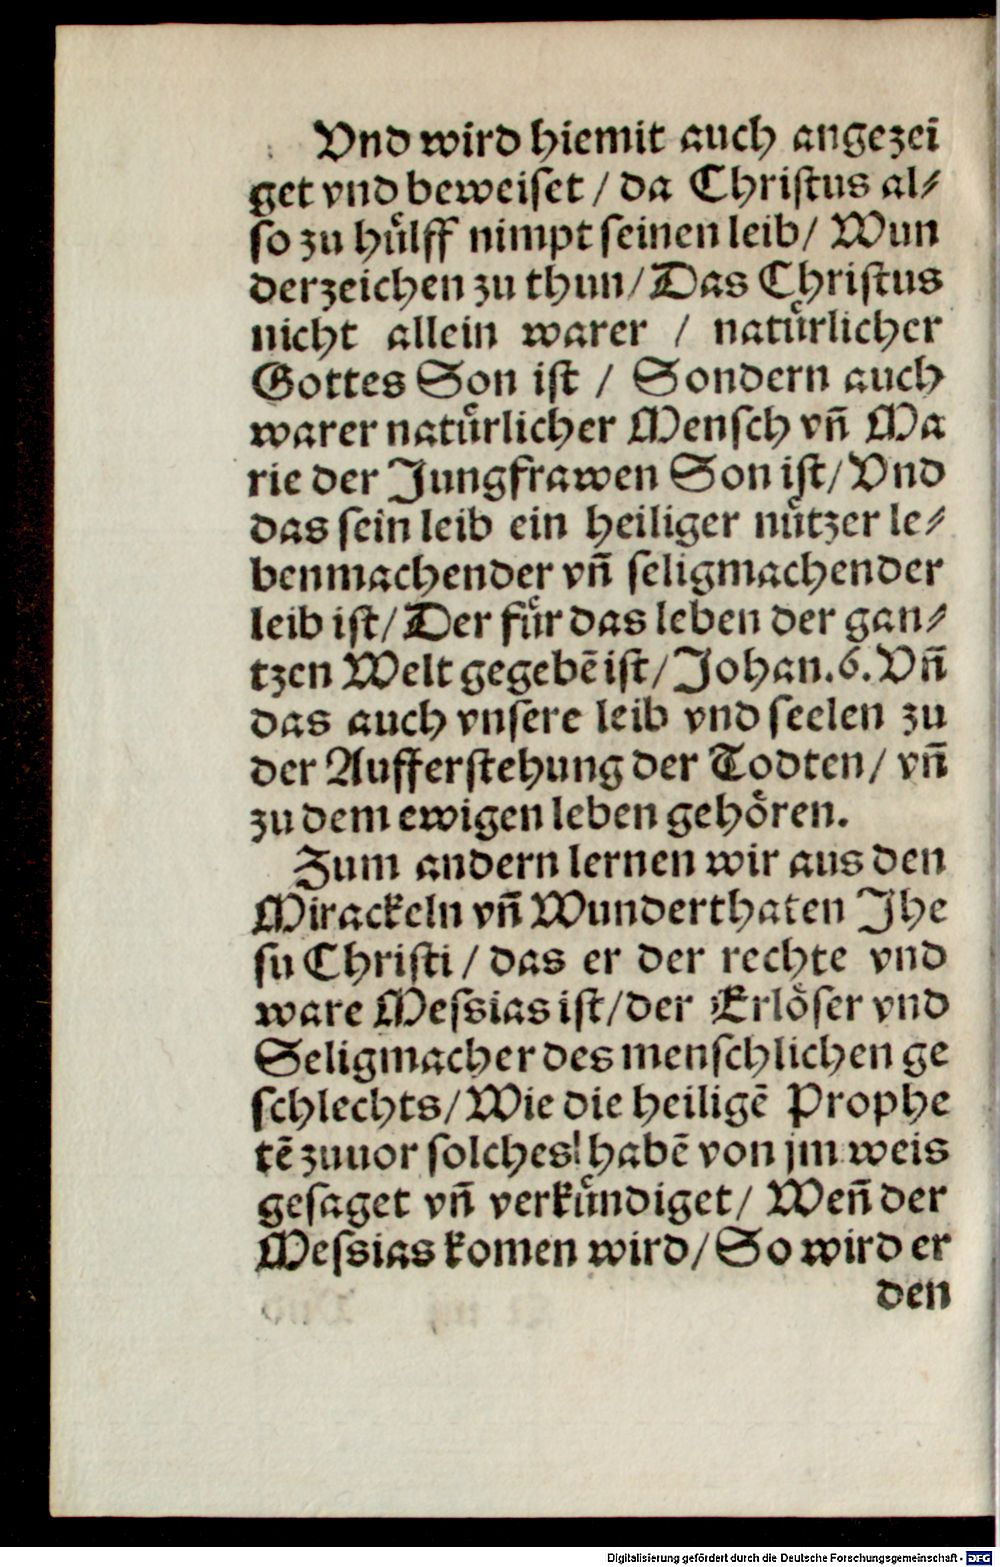 Vnd wird hiemit auch angezei
get vnd beweiſet / da Chriſtus al⸗
ſo zu huͤlff nimpt ſeinen leib / Wun
derzeichen zu thun / Das Chriſtus
nicht allein warer / natuͤrlicher
Gottes Son iſt / Sondern auch
warer natuͤrlicher Menſch vn̄ Ma
rie der Jungfrawen Son iſt / Vnd
das ſein leib ein heiliger nuͤtzer le⸗
benmachender vn̄ ſeligmachender
leib iſt / Der fuͤr das leben der gan⸗
tzen Welt gegebē iſt / Johan. 6. Vn̄
das auch vnſere leib vnd ſeelen zu
der Aufferſtehung der Todten / vn̄
zu dem ewigen leben gehoͤren.
Zum andern lernen wir aus den
Mirackeln vn̄ Wunderthaten Jhe
ſu Chriſti / das er der rechte vnd
ware Meſsias iſt / der Erloͤſer vnd
Seligmacher des menſchlichen ge
ſchlechts / Wie die heiligē Prophe
tē zuuor ſolches habē von jm weis
geſaget vn̄ verkuͤndiget / Wen̄ der
Meſsias komen wird / So wird er
den
Digitalisierung gefördert durch die Deutsche Forschungsgemeinschaft - DFG